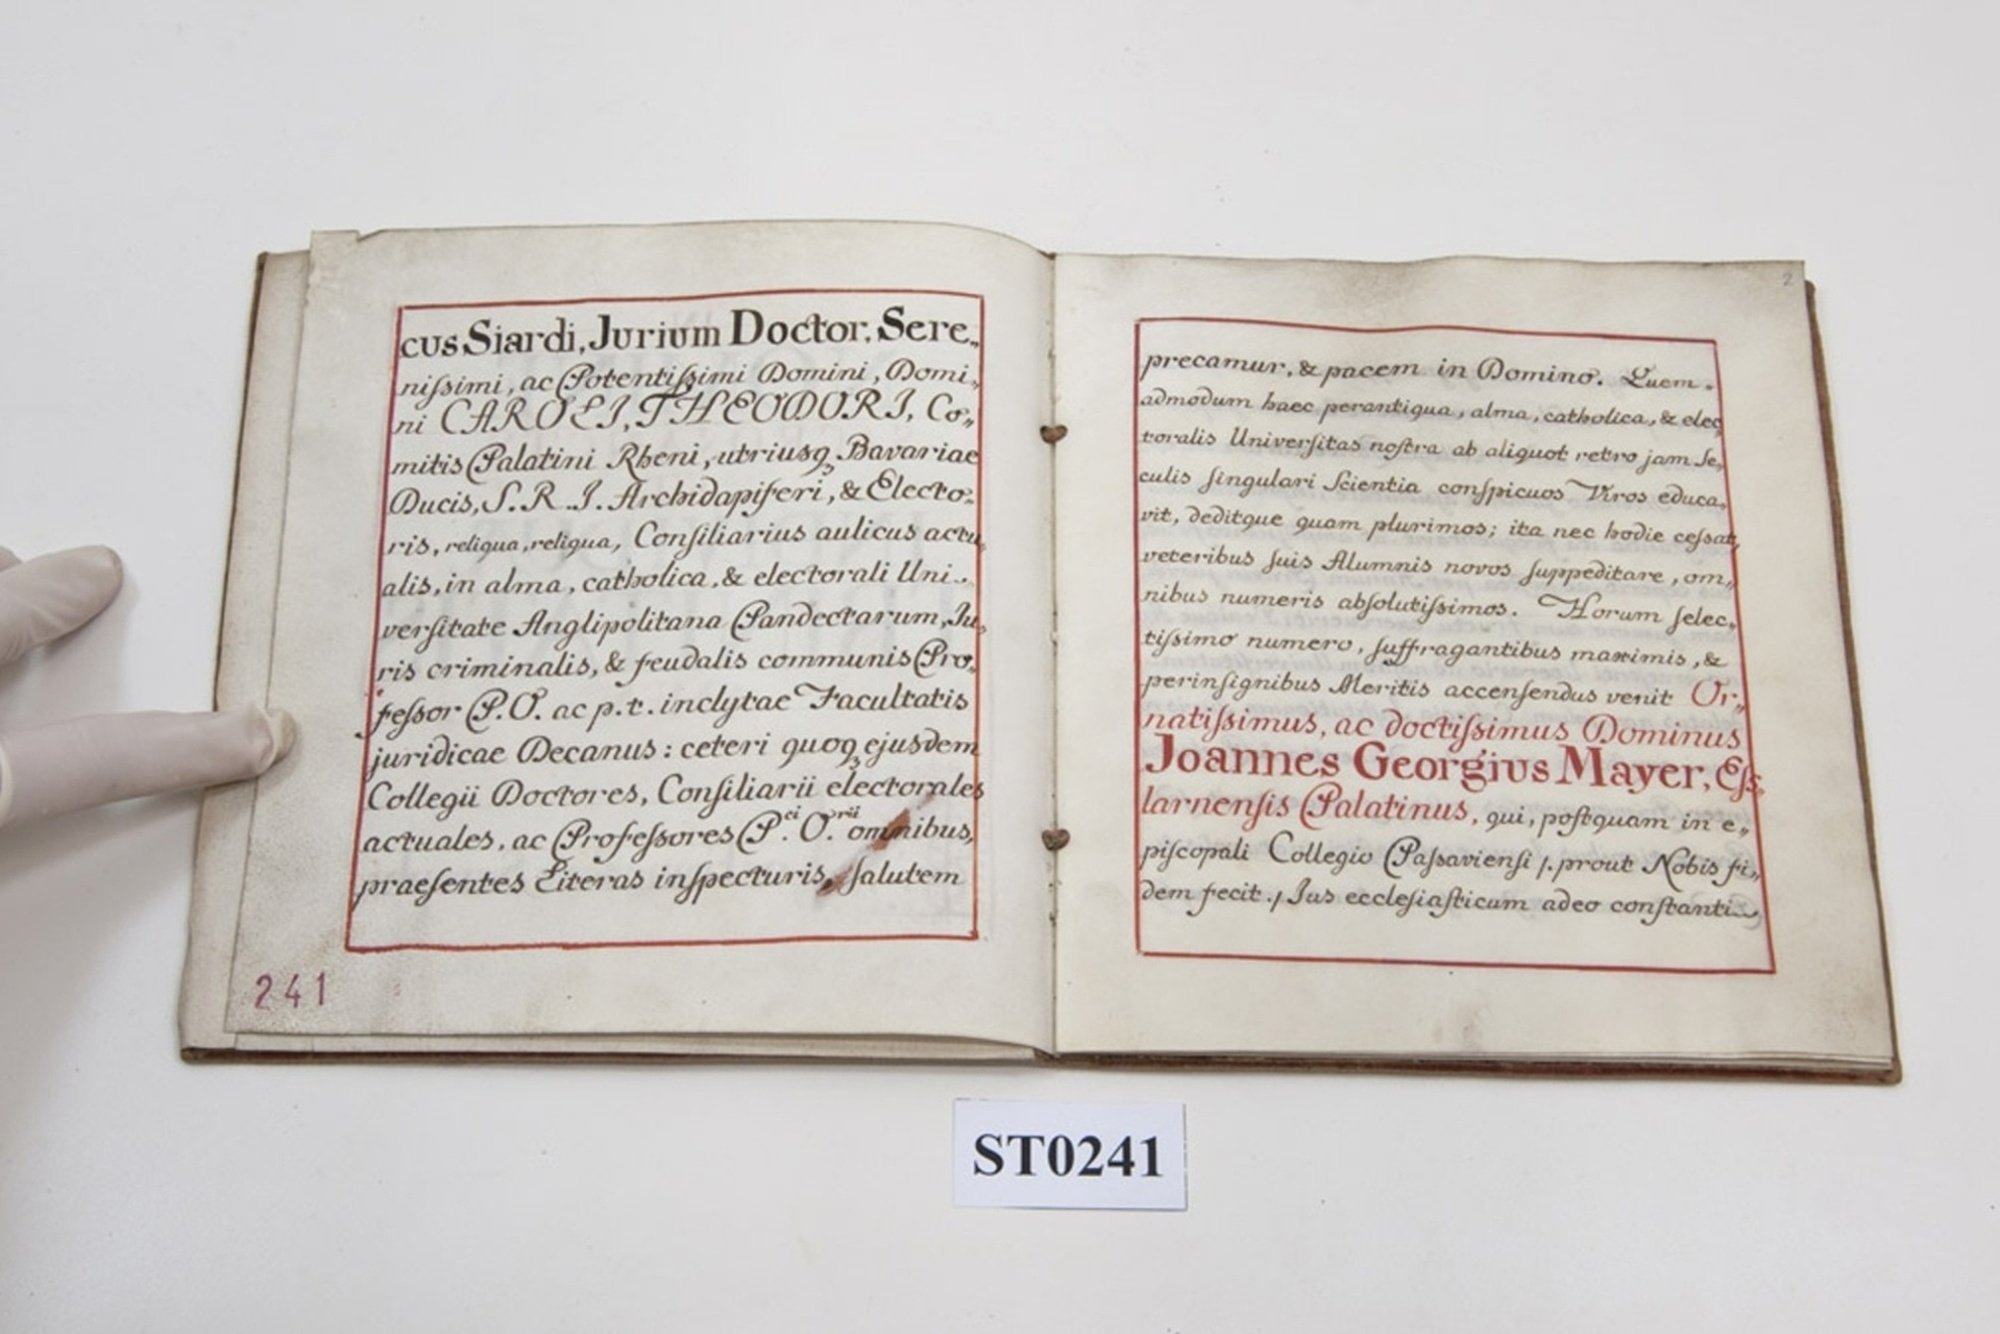 cus Siardi, Jurium Doctor, Sere„
niſsimi, ac Potentiſsimi Domini, Domi„
ni CAROLI, THEODORI, Co„
mitis Palatini Rheni, utriusq3 Bavariae
Ducis, S. R. I. Archidapiferi, & Electo„
ris, reliqua, reliqua, Conſiliarius aulicus actu„
alis, in alma, catholica, & electorali Uni„
verſitate Anglipolitana Pandectarum, Ju„
ris criminalis, & feudalis communis Pro„
feſsor P. O. ac p. t. inclytae Facultatis
juridicae Decanus: ceteri quoq3 ejusdem
Collegii Doctores, Conſiliarii electorales
actuales, ac Profeſsores P.ci O.rii omnibus,
praeſentes Literas inſpecturis, ſalutem
241
2
precamur, & pacem in Domino. Quem„
admodum haec perantiqua, alma, catholica, & elec„
toralis Univerſitas noſtra ab aliquot retro jam Se„
culis ſingulari Scientia conſpicuos Viros educa„
vit, deditque quam plurimos; ita nec hodie ceſsat,
veteribus ſuis Alumnis novos ſuppeditare, om„
nibus numeris abſolutiſsimos. Horum ſelec„
tiſsimo numero, ſuffragantibus maximis, &
perinſignibus Meritis accenſendus venit Or„
natiſsimus, ac doctiſsimus Dominus
Joannes Georgius Mayer, Eſs„
larnenſis Palatinus, qui, poſtquam in e„
piſcopali Collegio Paſsavienſi /. prout Nobis fi„
dem fecit ./ Jus eccleſiaſticum adeo conſtanti„
ST0241